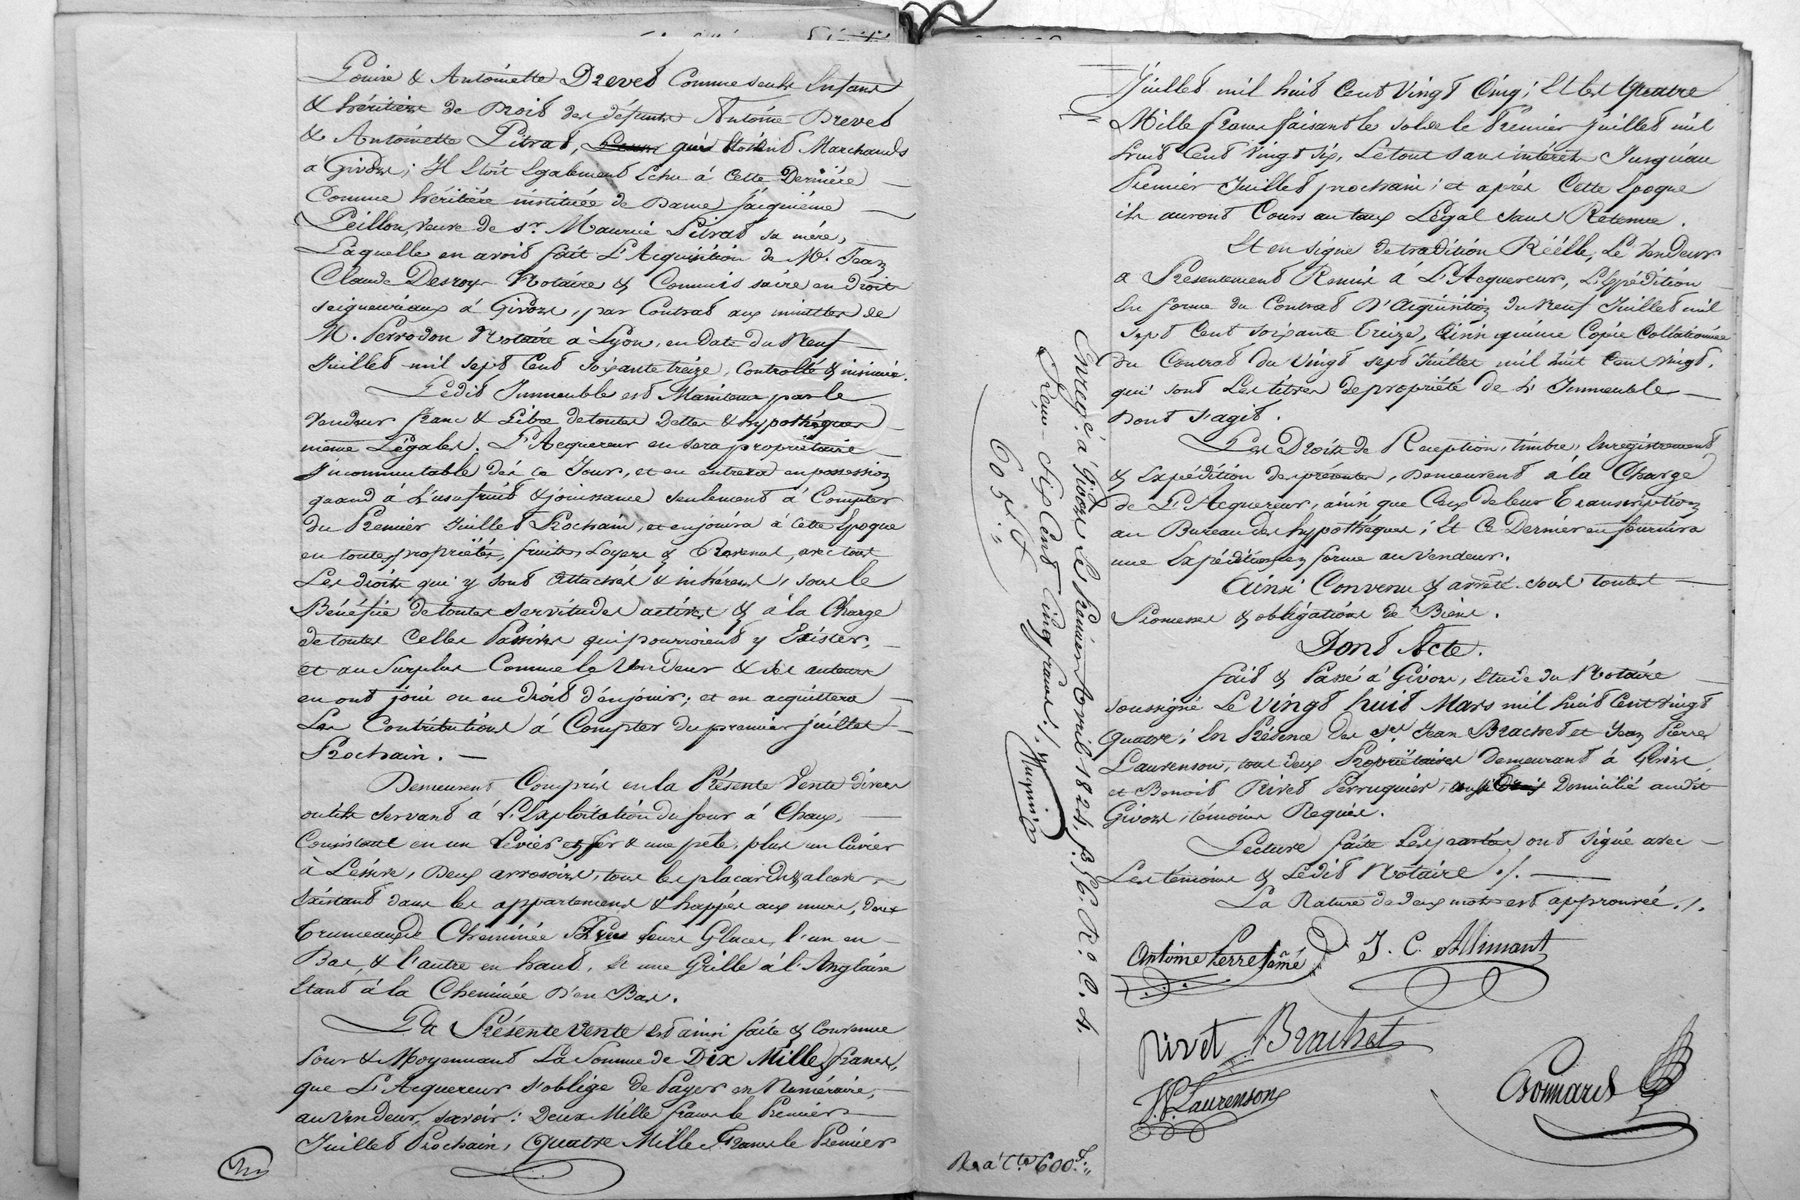 Louise & Antoinette Drevet Comme seuls Enfans
& héritiers de Droit des défunts Antoine Drevet
& Antoinette Pitrat, qui étoient Marchands
à Givors; Il étoit Egalement Echu à Cette Dernière
Comme héritière instituée de Dame Jacquième
Peillon, veuve de Sr. Maurice Pitrat sa mère,
Laquelle en avoit fait L'Acquisition de Mr. Jean
Claude Desroy Notaire & Commissaire en Droits
seigneuriaux à Givors, par Contrat aux minutes de
M. Perrodon Notaire à Lyon, en date du Neuf
Juillet mil sept Cent soixante treize, Controllé & insinué.
Ledit Immeuble est Maintenu par le
Vendeur franc & Libre de toutes Dettes & hypothèques
même Légales. L'Acquereur en sera propriétaire
incommutable dès ce Jour, et en entrera en possession
quand à L'usufruit & jouissance seulement à Compter
du Premier Juillet Prochain, et en jouira à cette Epoque
en toutes propriétés, fruits, Loyers & Revenus, avec tous
Les droits qui y sont attachés & inhérens, sous le
Bénéfice de toutes servitudes actives & à la Charge
de toutes Celles Passives qui pourroient y Exister,
et au surplus Comme le Vendeur & ses auteurs
en ont joui ou eu Droit d'en jouir; et en acquittera
Les Contributions à Compter du premier juillet
Prochain.
Demeurent Compris en la Présente Vente divers
outils servant à L'Exploitation du four à Chaux,
Consistant en un Levier en fer & une pele, plus un Cuvier
à Lessive, Deux arrosoirs, tous les placards & alcoves
Existant dans les appartemens & happés aux murs, deux
trumeaux de Cheminée avec leurs Glaces, l'un en
Bas, & l'autre en haut, Et une Grille à l'Anglaise
Etant à la Cheminée D'en Bas.
La Présente Vente est ainsi faite & Convenue
Pour & Moyennant La Somme de Dix Mille francs,
que L'Acquereur s'oblige de Payer en Numéraire,
au Vendeur, savoir: Deux Mille francs le Premier
Juillet Prochain, Quatre Mille Francs le Premier
Juillet mil huit Cent Vingt Cinq; Et les Quatre
Mille francs faisant le solde le Premier Juillet mil
huit Cent Vingt Six, Le tout sans intérêts Jusqu'au
Premier Juillet prochain; et après Cette Epoque
ils auront Cours au taux Légal sans Retenue.
Et en signe de tradition Réelle, Le Vendeur
a Présentement Remis à L'Acquereur, L'Expédition
En forme du Contrat D'Acquisition du Neuf Juillet mil
sept Cent soixante treize, Ainsi qu'une Copie Collationnée
du Contrat du Vingt sept Juillet mil huit Cent Vingt,
qui sont Les titres de propriété de L'Immeuble
Dont s'agit.
Les Droits de Réception, timbre, Enregistrement
& Expédition des présentes, Demeurent à la Charge
de L'Acquereur, ainsi que Ceux de leur Transcription
au Bureau des hypothèques; Et Ce Dernier en fournira
une Expédition en forme au Vendeur.
Ainsi Convenu & arrêté sous toutes
Promesses & obligations de Biens.
Dont Acte.
Fait & Passé à Givors, Etude du Notaire
soussigné Le Vingt huit Mars mil huit Cent Vingt
Quatre; En Présence des Srs. Jean Brachet et Jean Pierre
Laurenson, tous deux Propriétaires Demeurant à Givors,
et Benoit Rivet Perruquier, aussi Domicilié audit
Givors, témoins Requis.
Lecture faite Les parties ont signé avec
Les témoins & Ledit Notaire ./.
La Rature de deux mots est approuvée ./.
Antoine Perret ainé J. C. Allimant
Rivet Brachet
J. P. Laurenson
Bonnard
Enregé. à Givors Le Premier Avril 1824, fo. 56. Ro. C. 4.
Reçu Six Cent Cinq francs ./.
605f.